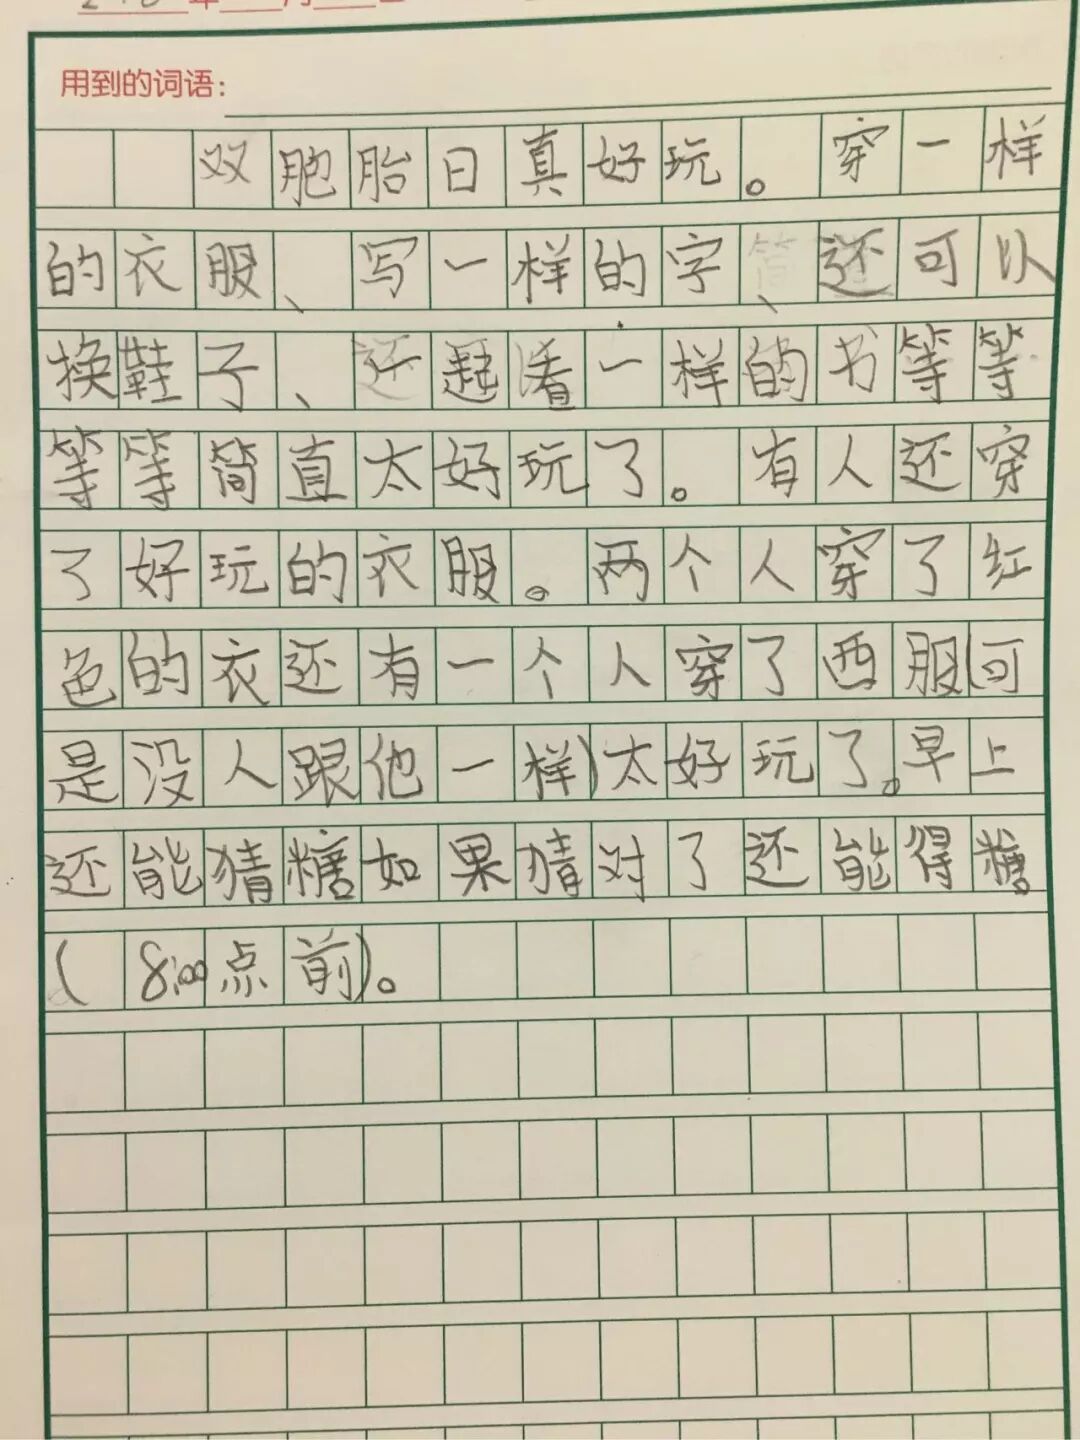 年 月
用到的词语：
双胞胎日真好玩。穿一样
的衣服、写一样的字、还可以
换鞋子、还起看一样的书等等
等等简直太好玩了。有人还穿
了好玩的衣服。两个人穿了红
色的衣还有一个人穿了西服(可
是没人跟他一样)太好玩了。早上
还能猜糖如果猜对了还能得糖。
(8:00点前)。